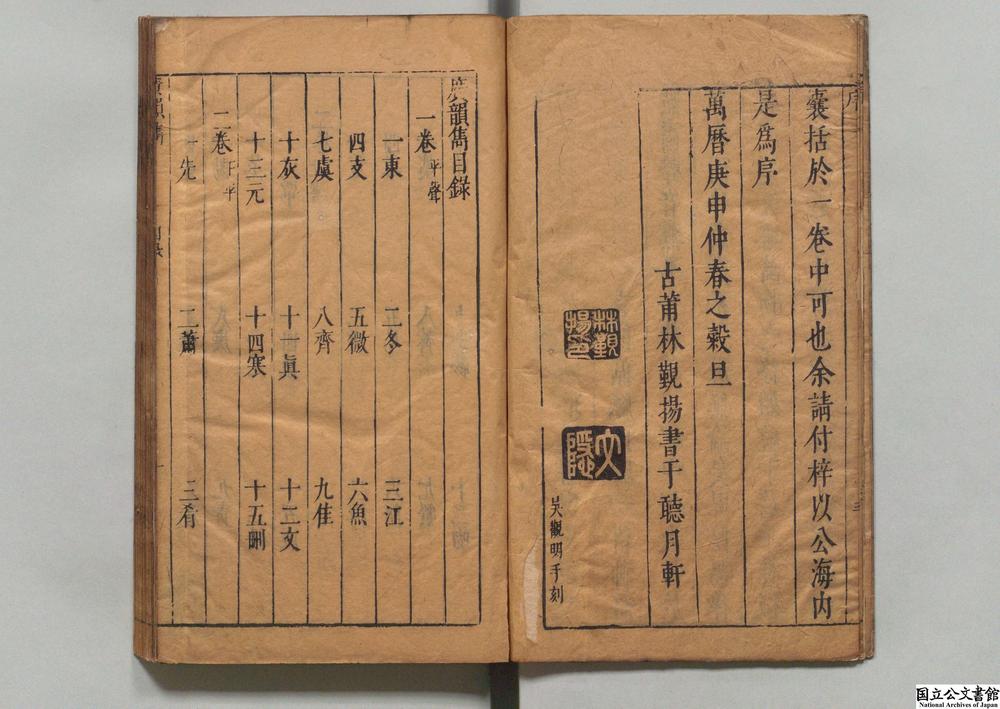 序
囊括於一卷中可也余請付梓以公海内
是爲序
萬曆庚申仲春之穀旦
古莆林觐揚書于聽月軒
林觐揚印
文隱
吳觀明手刻
廣韻雋目錄
一卷 平聲
一東 二冬 三江
四支 五微 六魚
七虞 八齊 九佳
十灰 十一眞 十二文
十三元 十四寒 十五刪
二卷 下平
一先 二蕭 三肴
廣韻雋 目錄
国立公文書館
National Archives of Japan